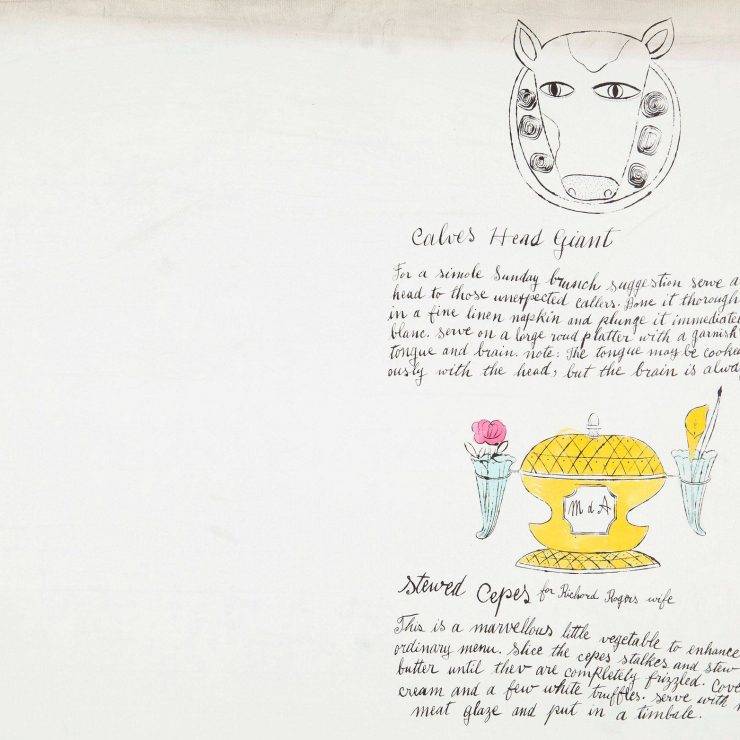 Calves Head Giant
For a simole Sunday brunch suggestion serve a
head to those unexpected callers. Bone it thorough
in a fine linen napkin and plunge it immediatel
blanc. serve on a large roud platter with a garnish
tongue and brain. note: The tongue may be cooked
ously with the head, but the brain is alwa
M d A
Stewed Cepes for Richard Rogers wife
This is a marvellous little vegetable to enhance
ordinary menu. Slice the cepes stalkes and stew
butter until thev are completely frizzled. Cove
cream and a few white truffles. Serve with
meat glaze and put in a timbale.